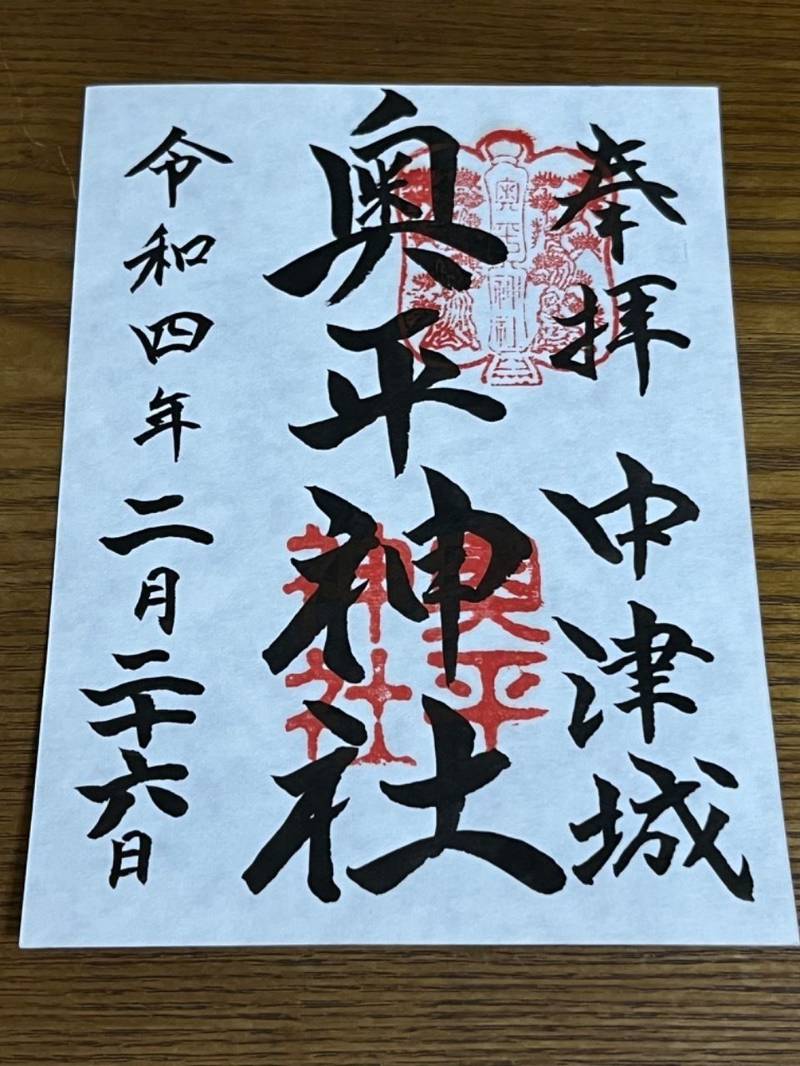 奉拝 中津城
奥平神社
奥平神社
奥平
神社
令和四年二月二十六日